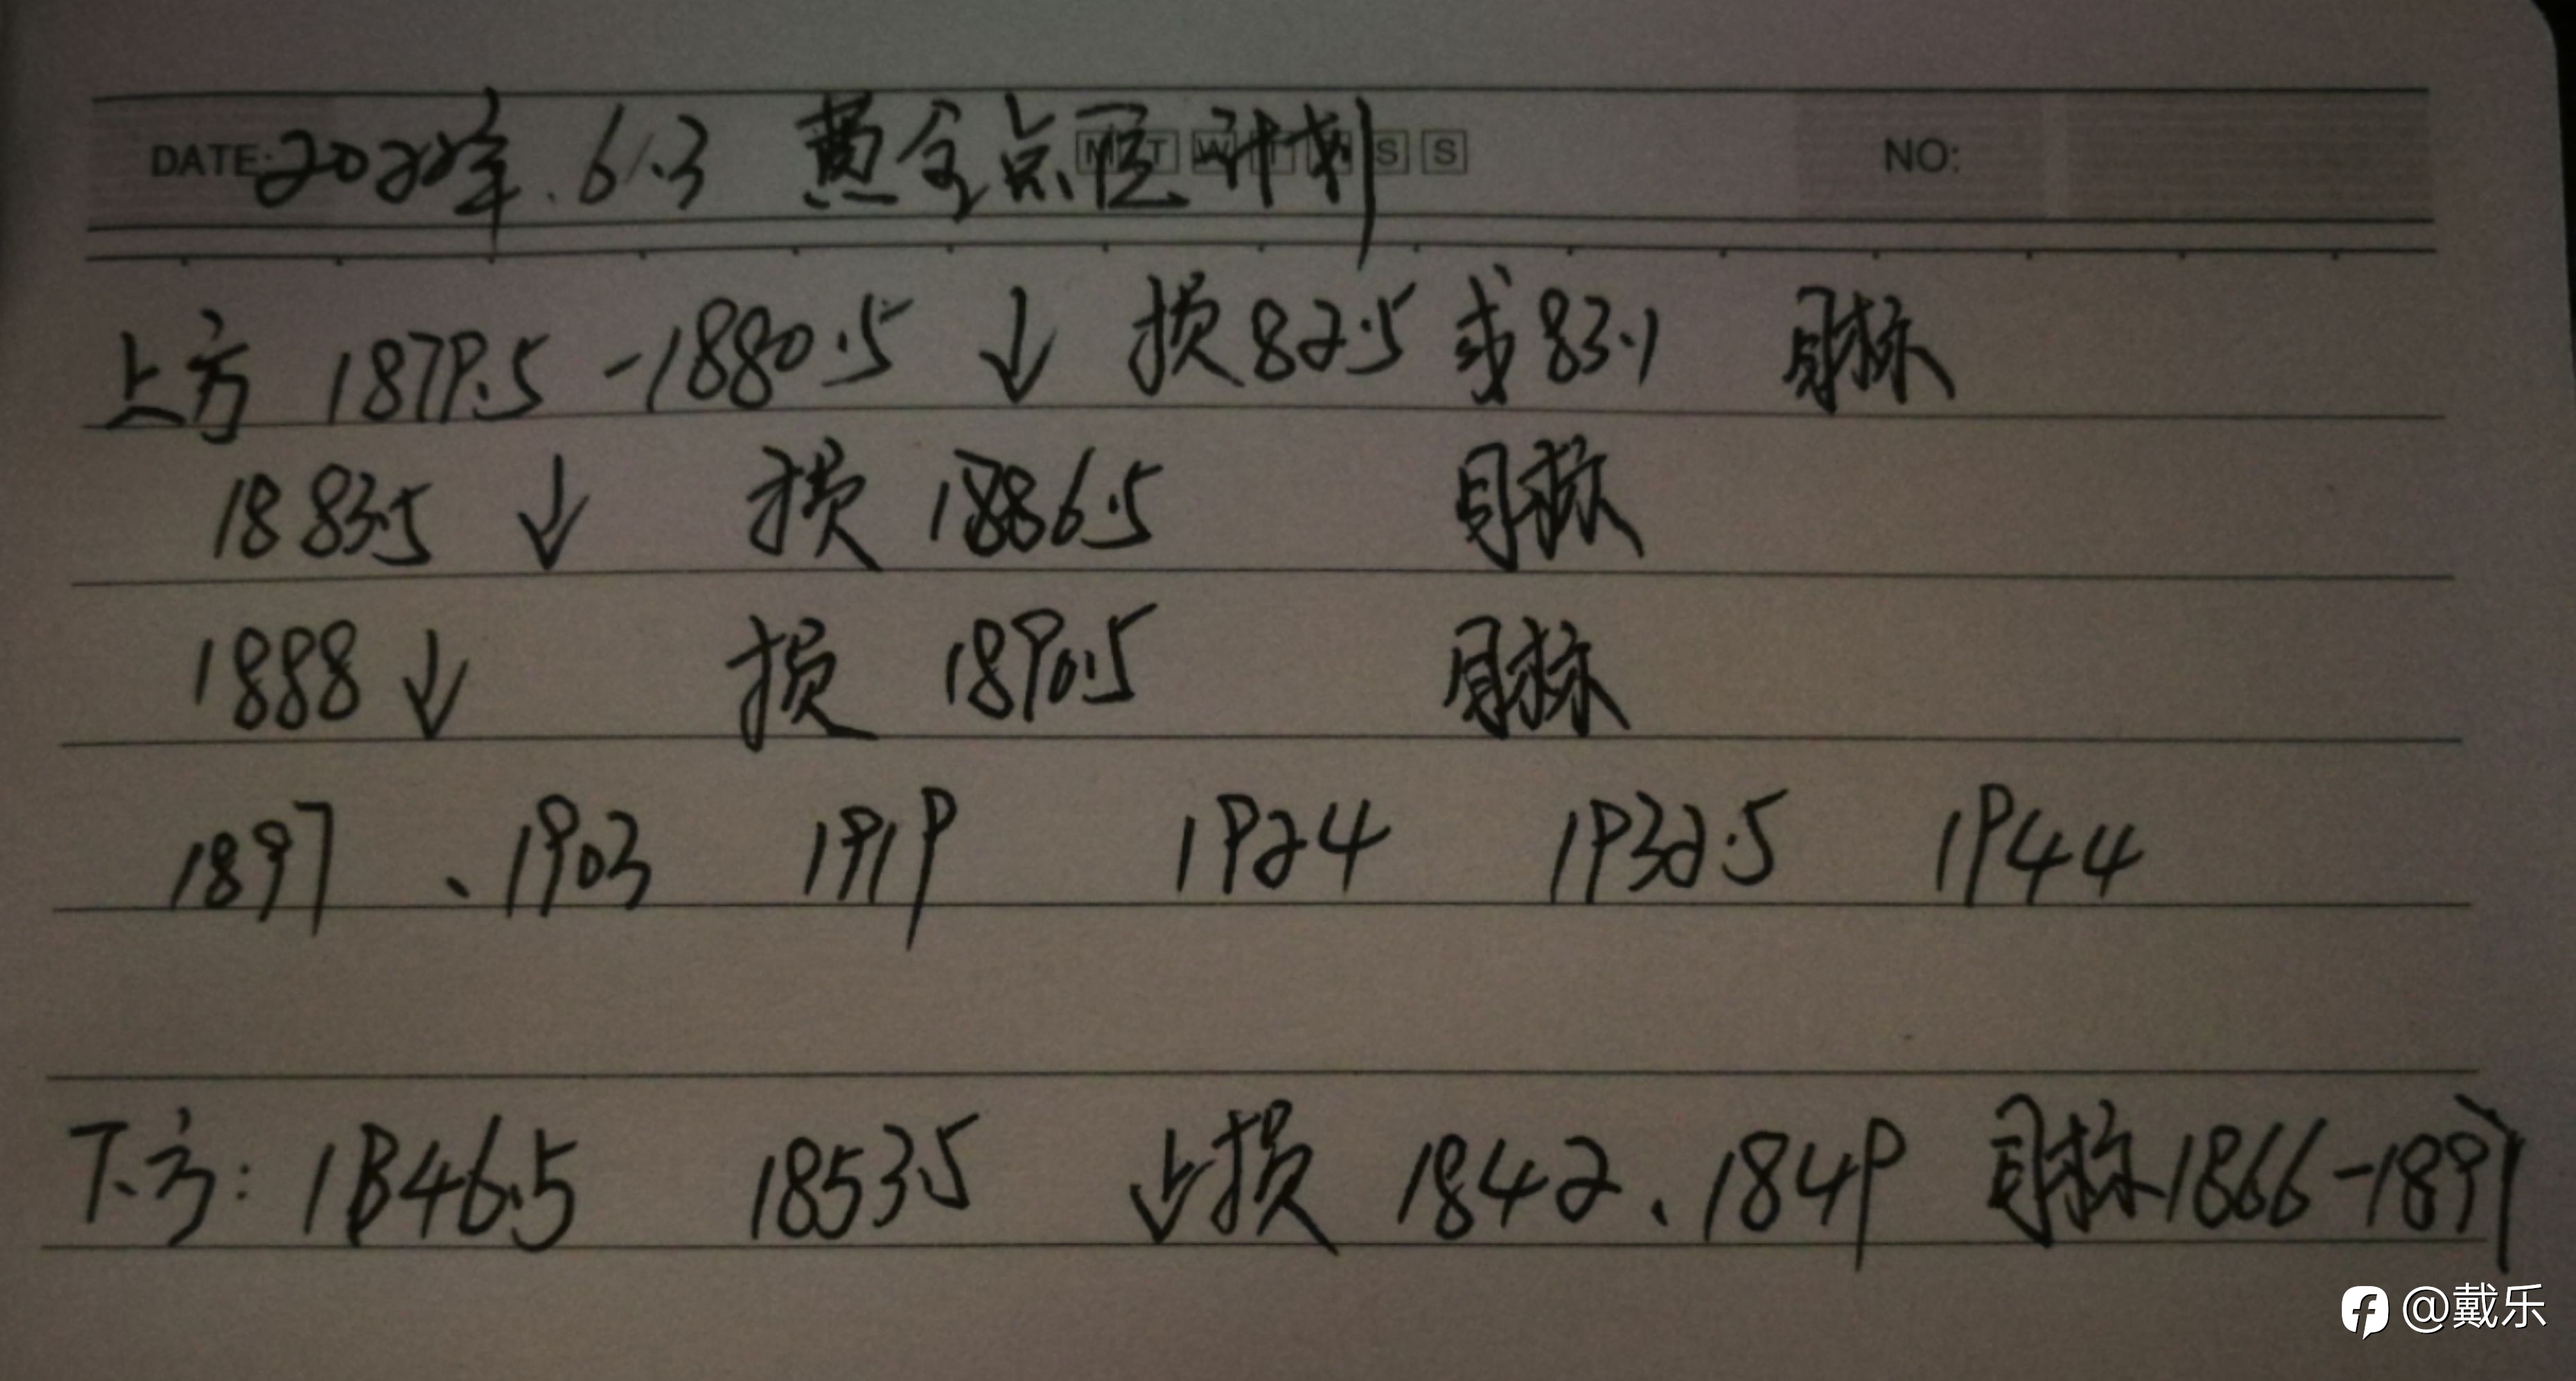 DATE: 2022年.6.3 黄金点位计划 M T W T F S S NO:
上方 1879.5-1880.5 ↓ 损82.5 或83.1 目标
1883.5 ↓ 损 1886.5 目标
1888 ↓ 损 1890.5 目标
1897、1903 1919 1924 1932.5 1944
下方: 1846.5 1853.5 止损 1842、1849 目标1866-1897
@戴乐